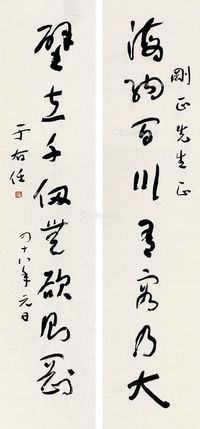 剛正先生正
海納百川有容乃大
壁立千仞無欲則剛
四十八年元日
于右任